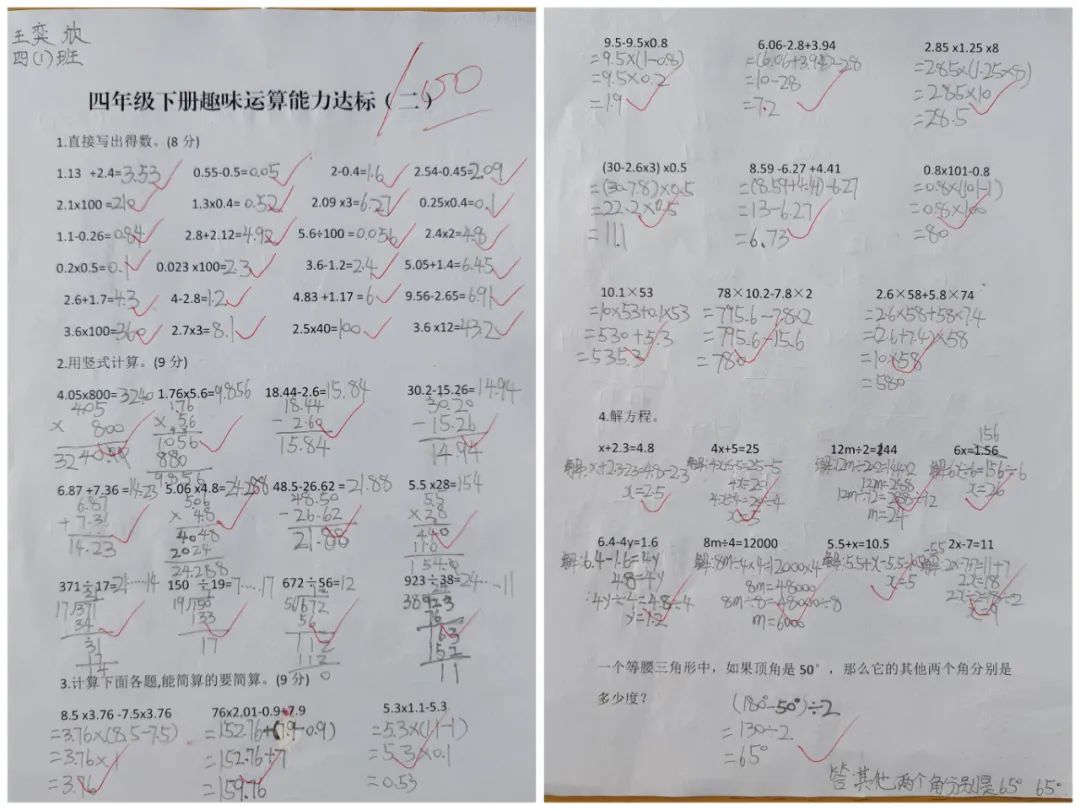 王奕欣
四(1)班
100
四年级下册趣味运算能力达标（二）
1.直接写出得数。(8分)
1.13 +2.4=3.53 0.55-0.5=0.05 2-0.4=1.6 2.54-0.45=2.09
2.1x100 =210 1.3x0.4= 0.52 2.09 x3=6.27 0.25x0.4=0.1
1.1-0.26=0.84 2.8+2.12=4.92 5.6÷100 =0.056 2.4x2=4.8
0.2x0.5=0.1 0.023 x100=2.3 3.6-1.2=2.4 5.05+1.4=6.45
2.6+1.7=4.3 4-2.8=1.2 4.83 +1.17 =6 9.56-2.65=6.91
3.6x100=360 2.7x3=8.1 2.5x40=100 3.6 x12=43.2
2.用竖式计算。(9分)
4.05x800=3240 1.76x5.6=9.856 18.44-2.6=15.84 30.2-15.26=14.94
405 1.76 18.44 30.20
× 800 × 5.6 - 2.60 - 15.26
3240.00 1056 15.84 14.94
880
9.856
6.87 +7.36 =14.23 5.06 x4.8=24.288 48.5-26.62 =21.88 5.5 x28=154
6.87 5.06 48.50 5.5
+ 7.36 × 4.8 - 26.62 × 28
14.23 4048 21.88 440
2024 110
24.288 154.0
371÷17=21……14 150 ÷19=7……17 672÷56=12 923÷38=24……11
17 371 19 150 56 672 38 923
34 133 56 76
31 17 112 163
17 112 152
14 0 11
3.计算下面各题,能简算的要简算。(9分)
8.5 x3.76 -7.5x3.76 76x2.01-0.9+7.9 5.3x1.1-5.3
=3.76×(8.5-7.5) =152.76+(7.9-0.9) =5.3×(1.1-1)
=3.76×1 =152.76+7 =5.3×0.1
=3.76 =159.76 =0.53
9.5-9.5x0.8 6.06-2.8+3.94 2.85 x1.25 x8
=9.5×(1-0.8) =(6.06+3.94)-2.8 =2.85×(1.25×8)
=9.5×0.2 =10-2.8 =2.85×10
=1.9 =7.2 =28.5
(30-2.6x3) x0.5 8.59 -6.27 +4.41 0.8x101-0.8
=(30-7.8)×0.5 =(8.59+4.41)-6.27 =0.8×(101-1)
=22.2×0.5 =13-6.27 =0.8×100
=11.1 =6.73 =80
10.1×53 78×10.2-7.8×2 2.6×58+5.8×74
=10×53+0.1×53 =795.6-7.8×2 =2.6×58+58×7.4
=530+5.3 =795.6-15.6 =(2.6+7.4)×58
=535.3 =780 =10×58
=580
4.解方程。
156
x+2.3=4.8 4x+5=25 12m÷2=144 6x=1.56
解:x+2.3-2.3=4.8-2.3 解:4x+5-5=25-5 解:12m÷2×2=144×2 解:6x÷6=156÷6
x=2.5 4x=20 12m=288 x=26
4x÷4=20÷4 12m÷12=288÷12
x=5 m=24
6.4-4y=1.6 8m÷4=12000 5.5+x=10.5 2x-7=11
解:6.4-1.6=4y 解:8m÷4×4=12000×4 解:5.5+x-5.5=10.5-5.5 解:2x-7+7=11+7
4.8=4y 8m=48000 x=5 2x=18
4y÷4=4.8÷4 8m÷8=48000÷8 2x÷2=18÷2
y=1.2 m=6000 x=9
一个等腰三角形中，如果顶角是50°，那么它的其他两个角分别是
多少度？
(180°-50°)÷2
=130÷2
=65°
答:其他两个角分别是65° 65°